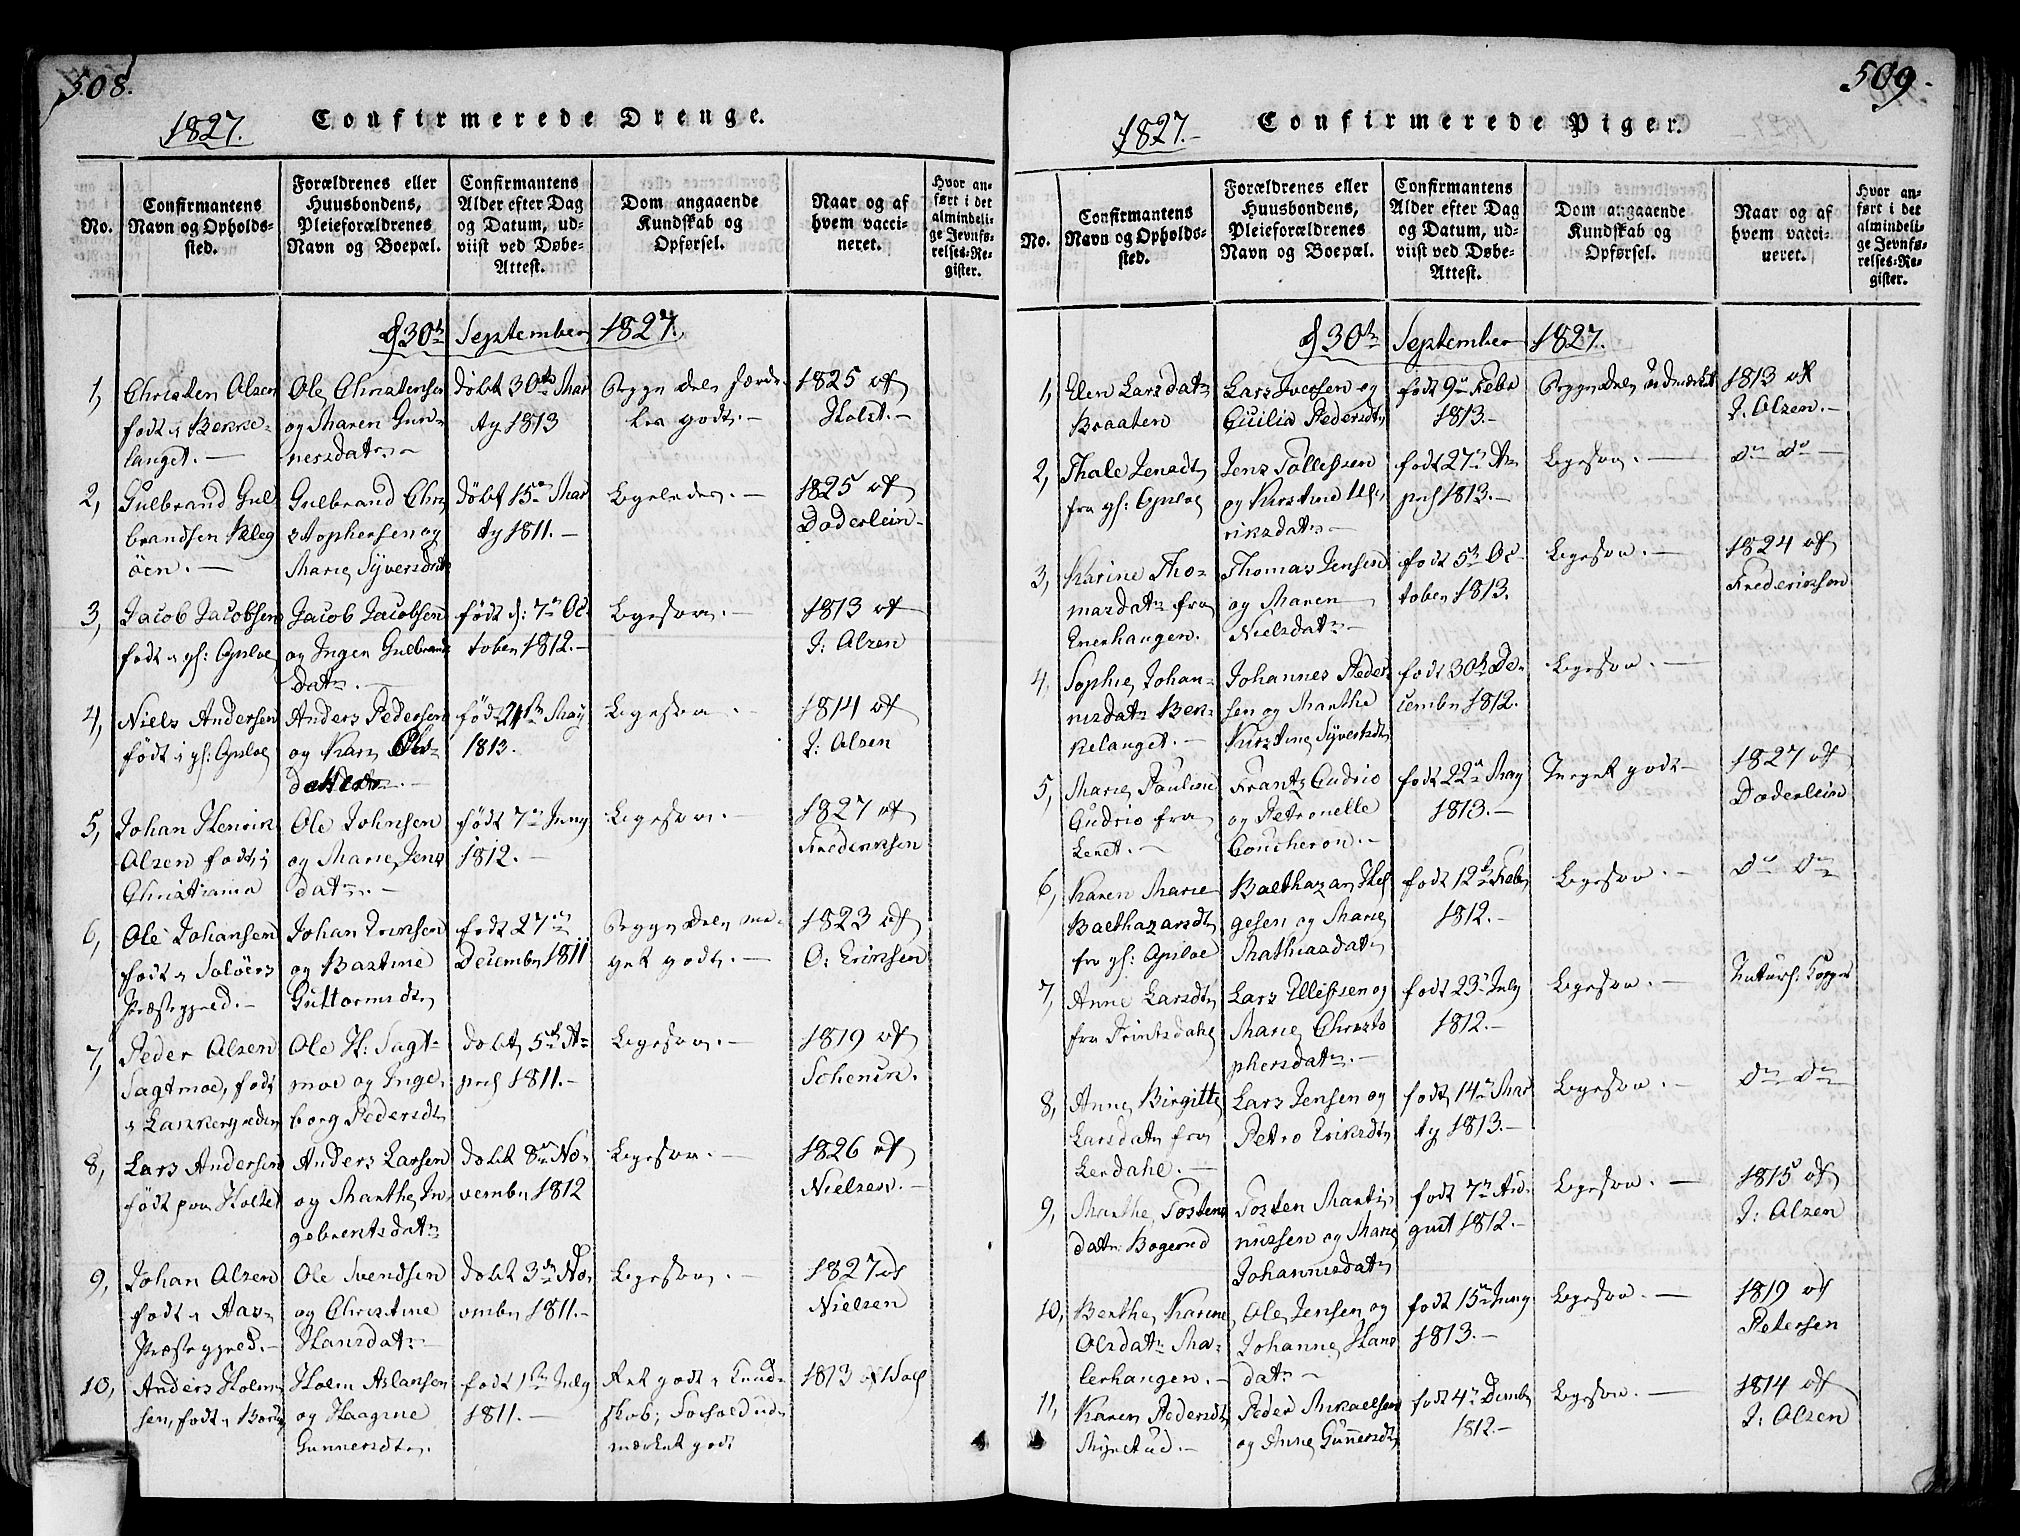 508.
1827.
Confirmerede Drenge.
No.
Confirmantens
Navn og Opholds-
sted.
Forældrenes eller
Huusbondens,
Pleieforældrenes
Navn og Boepæl.
Confirmantens
Alder efter Dag
og Datum, ud-
viist ved Døbe-
Attest.
Dom angaaende
Kundskab og
Opførsel.
Naar og af
hvem vacci-
neret.
Hvor an-
ført i det
almindeli-
ge Jevnfø-
relses-Re-
gister.
30te September 1827.
1,
Christen Olsen
født i Bekke-
langet.
Ole Christensen
og Maren Gun-
nersdatr
døbt 30te Mar
ty 1813
Begge Dele særde-
les godt.
1825 af
Holst.
2,
Gulbrand Gul
brandsen Kleg
øen.
Gulbrand Chri
stophersen og
Marie Syversdatr
døbt 15de Mar
ty 1811.
Ligeledes.
1825 af
Døderlein
3,
Jacob Jacobsen
født i gl: Opsloe
Jacob Jacobsen
og Ingen Gulbrands
datr.
født d: 7de Oc
tober 1812.
Ligesaa.
1813 af
J: Olsen
4,
Niels Andersen
født i gl: Opsloe
Anders Pedersen
og Kari
født 21de May
1813.
Ligesaa
1814 af
J: Olsen
5,
Johan Henrik
Olsen født i
Christiania
Ole Johnsen
og Marie Jens
datr.
født 7de Juny
1812.
Ligesaa.
1827 af
Frederiksen
6,
Ole Johansen
født i Soløers
Præstegjeld.
Johan Eriksen
og Bastine
Guttormsdt
født 27de
December 1811
Begge Dele me-
get godt.
1823 af
O: Eriksen
7,
Peder Olsen
Sagtmoe, født
i Lakkergaden
Ole H: Sagt-
moe og Inge-
borg Pedersdt
døbt 5te A-
pril 1811.
Ligesaa.
1819 af
8,
Lars Andersen
født paa Holtet
Anders Larsen
og Marthe In-
gebretsdatr
døbt 8de No-
vembr 1812
Ligesaa.
1826 af
Nielsen.
9,
Johan Olsen
født i Aas
Præstegjeld.
Ole Svendsen
og Christine
Hansdatr
døbt 3de No-
vembr 1811.
Ligesaa.
1827 af
Nielsen
10,
Anders Holm-
sen, født i
Holm Aslansen
og Haagine
Gunnersdtr.
født 1ste July
1811.
Ret godt i Kund-
skab; Forhold ud-
mærket godt
1813 af
509.
1827.
Confirmerede Piger.
No.
Confirmantens
Navn og Opholds-
sted.
Forældrenes eller
Huusbondens,
Pleieforældrenes
Navn og Boepæl.
Confirmantens
Alder efter Dag
og Datum, ud-
viist ved Døbe-
Attest.
Dom angaaende
Kundskab og
Opførsel.
Naar og af
hvem vacci-
neret.
Hvor an-
ført i det
almindeli-
ge Jevnfø-
relses-Re-
gister.
30te September 1827.
1,
Elen Larsdatr
Braaten
Lars Iversen og
Cicilia Pedersdt
født 9de Febr
1813.
Begge Dele Udmærket
1813 af
J. Olsen.
2,
Thale Jensdt
fra gl: Opsloe
Jens Tollefsen
og Kirstine Ul-
riksdatr
født 27de A-
pril 1813.
Ligesaa.
do do
3,
Karine Tho-
masdatr fra
Enerhaugen.
Thomas Jensen
og Maren
Nielsdatr
født 5te Oc
tober 1813.
Ligesaa.
1824 af
Frederiksen
4,
Sophie Johan-
nesdatr Bek-
kelanget.
Johannes Peder
sen og Marthe
Kirstine Syversdt
født 30te De-
cembr 1812.
Ligesaa.
5,
Marie Pauline
Gudrio fra
Leret.
Frantz Gudrio
og Petronelle
Coucheron.
født 22de May
1813.
Meget godt
1827 af
Døderlein
6,
Karen Marie
Balthazarsdt
fra gl: Opsloe
Balthazar Hel
gesen og Marie
Mathiasdatr
født 12te Febr
1812.
Ligesaa.
do do
7,
Anne Larsdt
fra Printsdahl
Lars Ellefsen og
Marie Christo
phersdatr.
født 23de July
1812.
Ligesaa.
Naturl: Kopper
8,
Anne Birgitte
Larsdatr fra
Lerdahl.
Lars Jensen og
Petro Eriksdt
født 14de Mar
ty 1813.
Ligesaa.
do do
9,
Marthe Tostens
datr Bogerud
Tosten Marti-
nussen og Marie
Johannesdatr
født 7de Au-
gust 1812.
Ligesaa.
1815 af
J: Olsen
10,
Berthe Karine
Olsdatr Ma-
lerhaugen.
Ole Jensen og
Johanne Hans
datr
født 15de Juny
1813.
Ligesaa.
1819 af
Petersen
11,
Karen Pedersdt
Peder Mikaelsen
og Anne Gunnersdt
født 4de Decembr
1812.
Ligesaa.
1814 af
J: Olsen